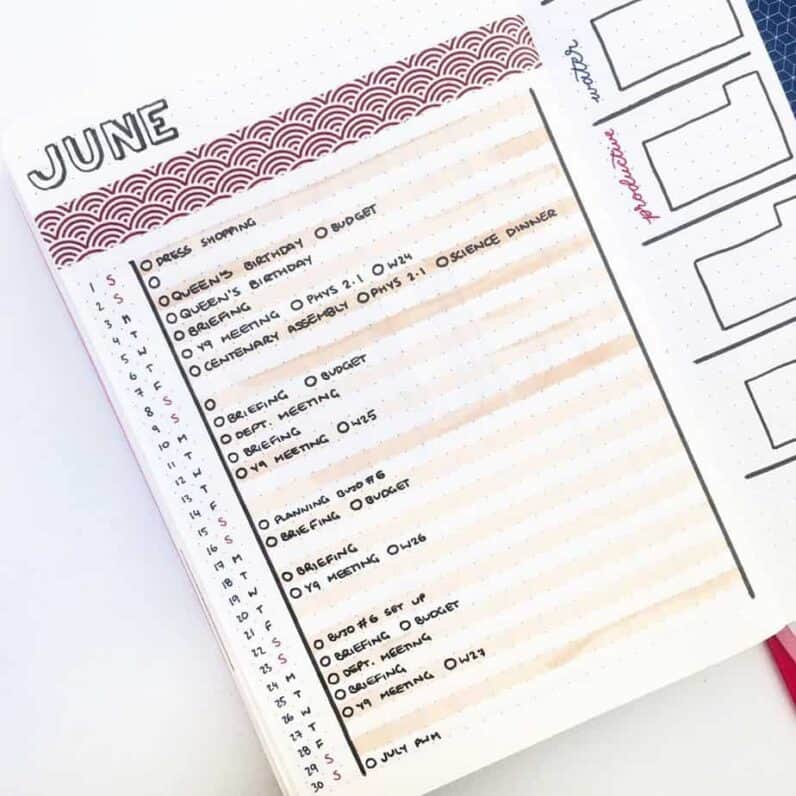 JUNE
1 S DRESS SHOPPING
2 S
3 M QUEEN'S BIRTHDAY BUDGET
4 T QUEEN'S BIRTHDAY
5 W BRIEFING
6 T Y9 MEETING PHYS 2.1 W24
7 F CENTENARY ASSEMBLY PHYS 2.1 SCIENCE DINNER
8 S
9 S
10 M BRIEFING BUDGET
11 T DEPT. MEETING
12 W BRIEFING
13 T Y9 MEETING W25
14 F
15 S
16 S PLANNING BUJO #6
17 M BRIEFING BUDGET
18 T
19 W BRIEFING
20 T Y9 MEETING W26
21 F
22 S
23 S BUJO #6 SET UP
24 M BRIEFING BUDGET
25 T DEPT. MEETING
26 W BRIEFING
27 T Y9 MEETING W27
28 F
29 S
30 S JULY PWM
water
productive